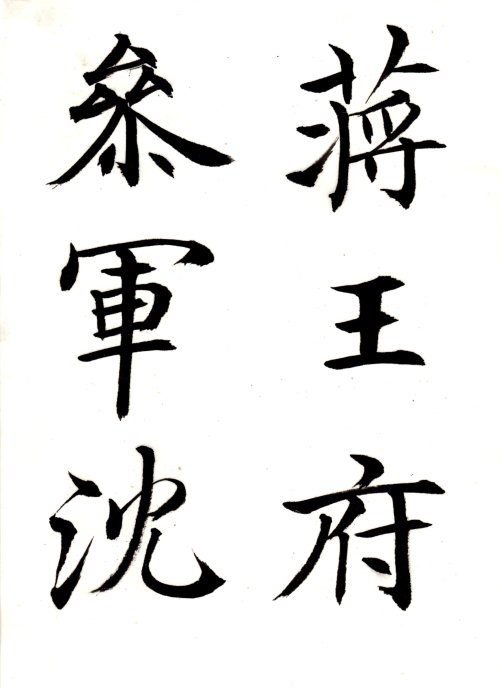 蒋王府
叅軍沈